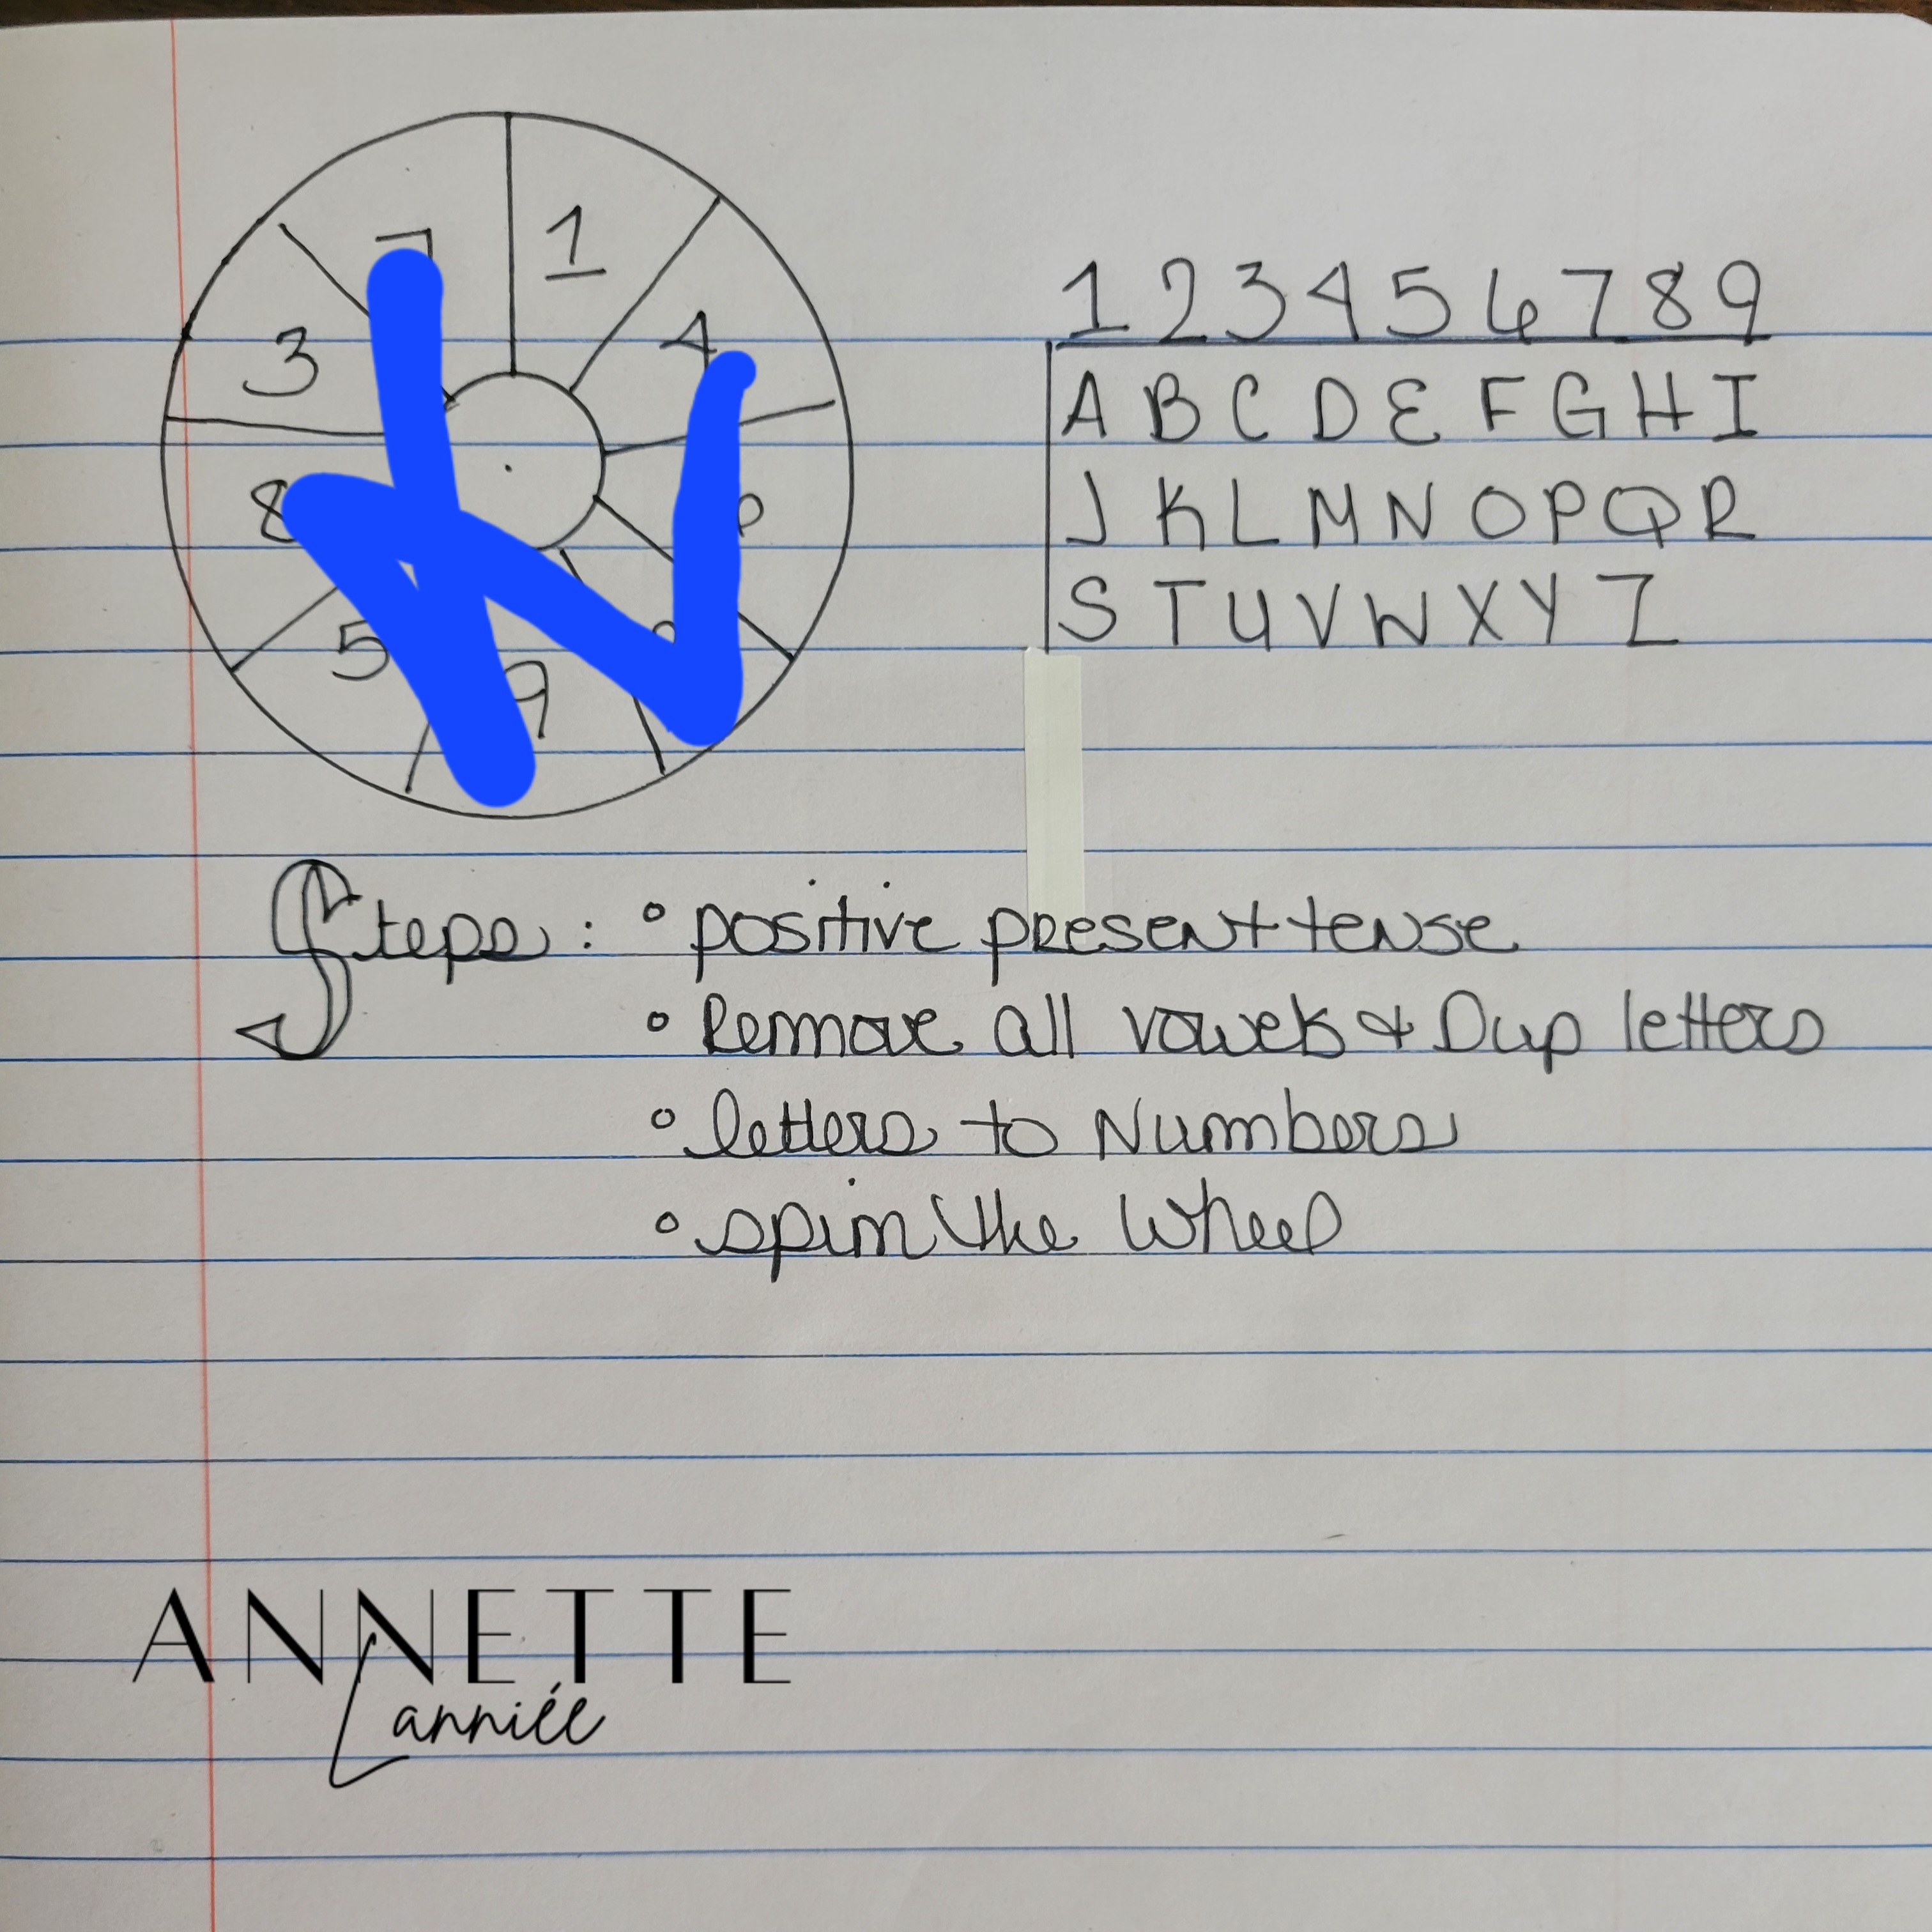 1
4
3
8
5
9
1 2 3 4 5 6 7 8 9
A B C D E F G H I
J K L M N O P Q R
S T U V W X Y Z
Steps: • positive present tense
• Remove all vowels & Dup letters
• letters to Numbers
• spin the wheel
ANNETTE
Lanniée